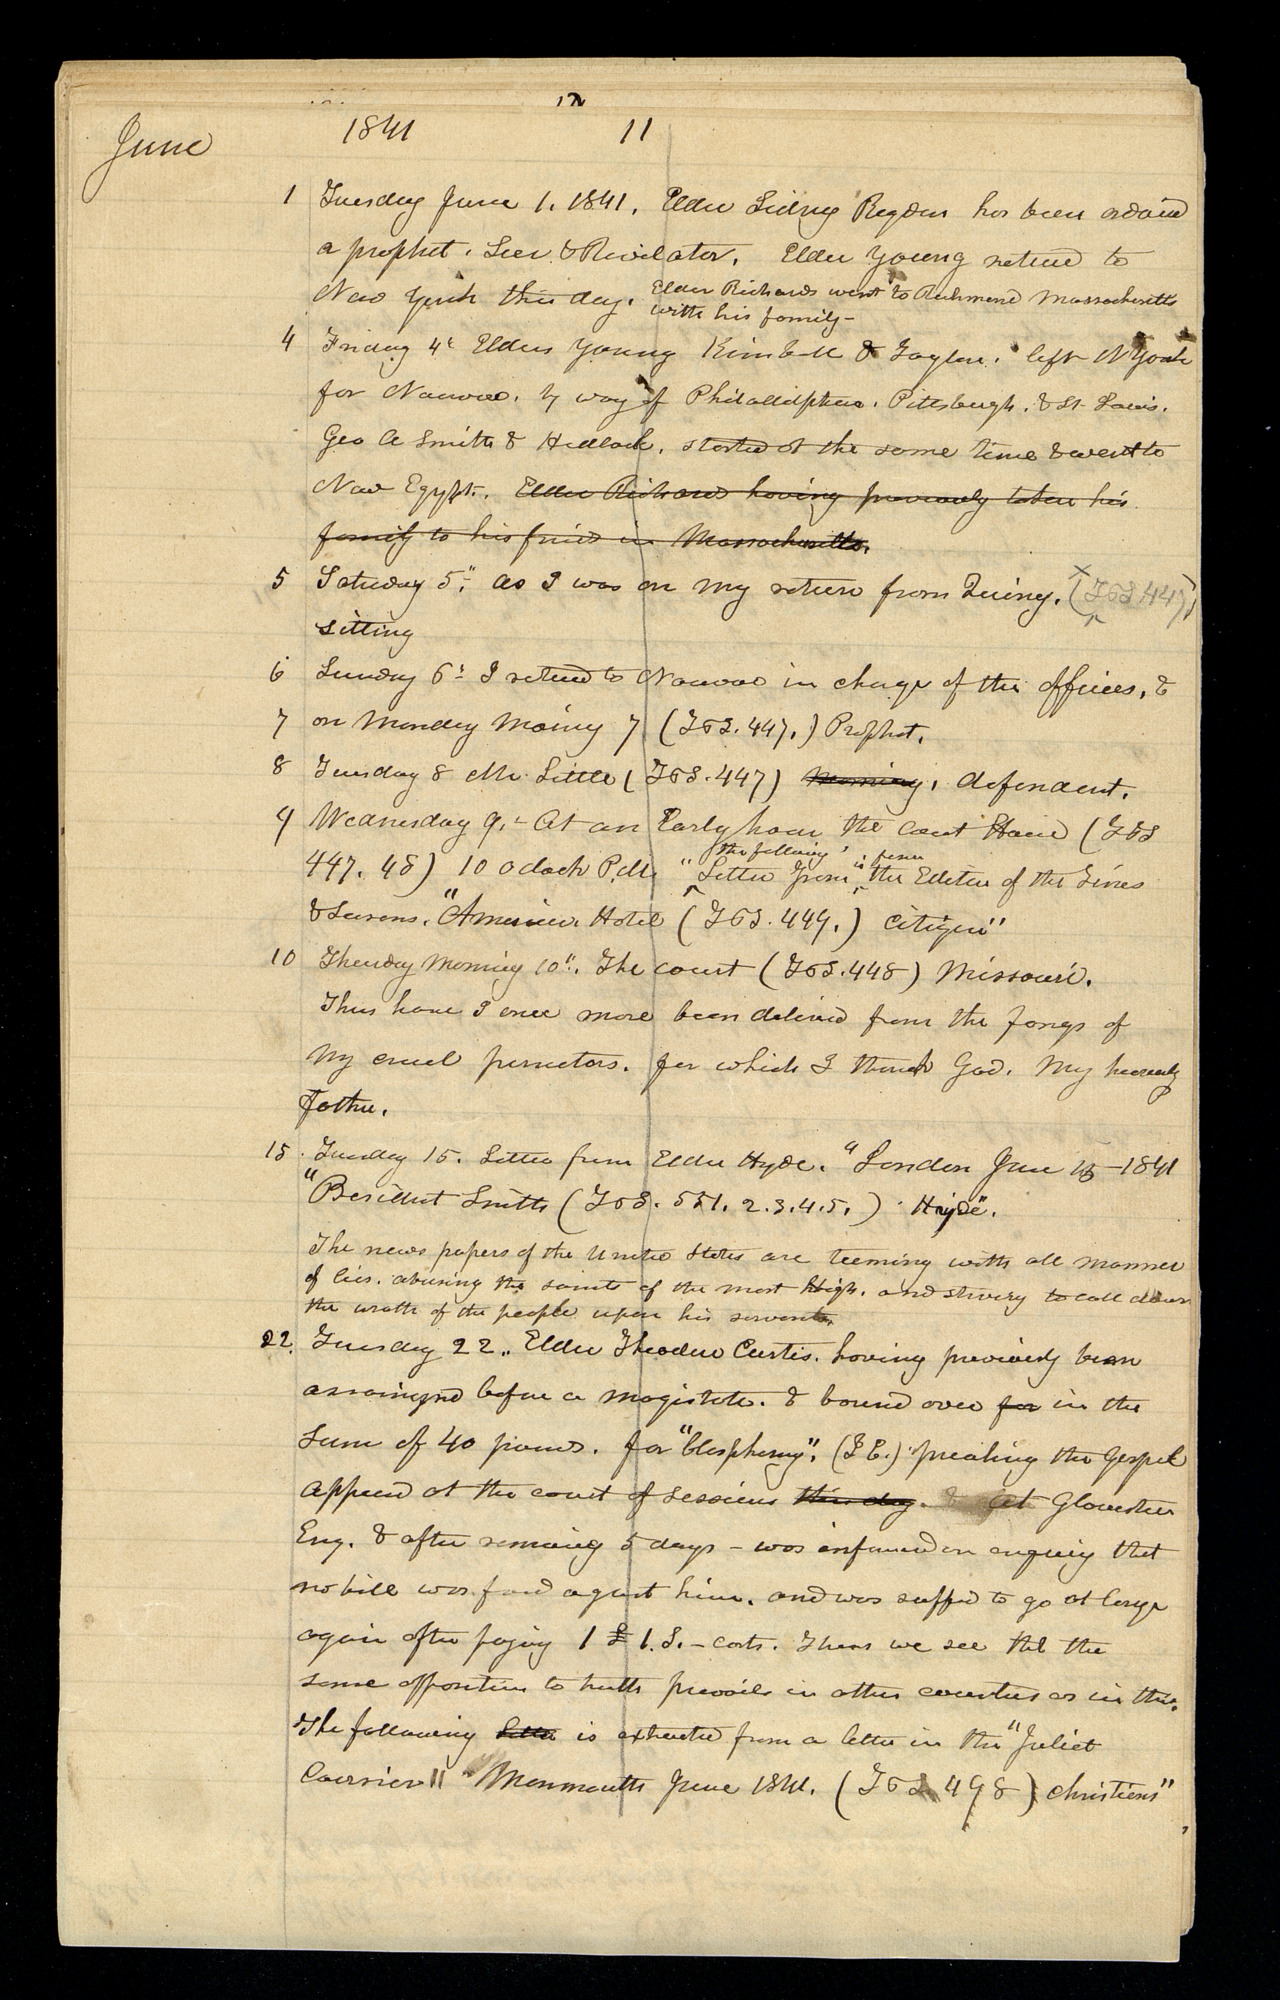 12
June 1841 11
1 Tuesday June 1. 1841. Elder Sidney Rigdon has been ordaind
a prophet. Seer. & Revelator. Elder Young returd to
New York this day. Elder Richards went to Richmond Massachusetts
with his family—
4 Friday 4t Elders Young Kimball & Taylor. left N York
for Nauvoo. by way of Philadelphia. Pittsburgh. & St Louis.
Geo A Smith & Hedlock. started at the same time & went to
New Egypt. Elder Richards having previously taken his
family to his frinds in Massachusetts.
5 Saturday 5.th as I was on my return from Quincy. (T&S 447)
sitting
6 Sunday 6th I returd to Nauvoo in charge of the officers, &
7 on Monday Morning 7 (T&S. 447.) Prophet.
8 Tuesday 8 Mr. Little (T&S. 447) Morning, defendent.
9 Wednesday 9.th At an Early hour the Court House (T&S
447. 48) 10 oclock P.M. "Letter from the Editor of the Times
the following is from
& Seasons. "American Hotel (T&S. 449.) Citizen"
10 Thursday Morning 10th. The court (T&S. 448) Missouri.
Thus have I once more been deliverd from the fangs of
My cruel persecutors. for which I thank God. My heavenly
Father.
15. Tuesday 15. Letter from Elder Hyde. "London June 15—1841
"President Smith (T&S. 551. 2. 3. 4. 5.) Hyde".
The news papers of the United States are teeming with all manner
of lies. abusing the saints of the most High. and striveing to call down
the wrath of the people upon his servants.
22. Tuesday 22.. Elder Theodore Curtis. having previously been
arraingnd before a magistrate. & bound over for in the
Sum of 40 pounds. for "blasphemy". (I E.) preaching the Gospel
appeared at the court of Sessions this day. & At Gloucester
Eng. & after remaining 5 days – was informed on enquiry that
no bill was found against him. and was sufferd to go at large
again after paying 1 £ 1. S.– costs. Thus we see that the
same opposition to truth prevails in other countries as in this.
The following letter is extracted from a letter in the "Juliet
Courrier" "Monmouth June 1841. (T&S 498) christians"